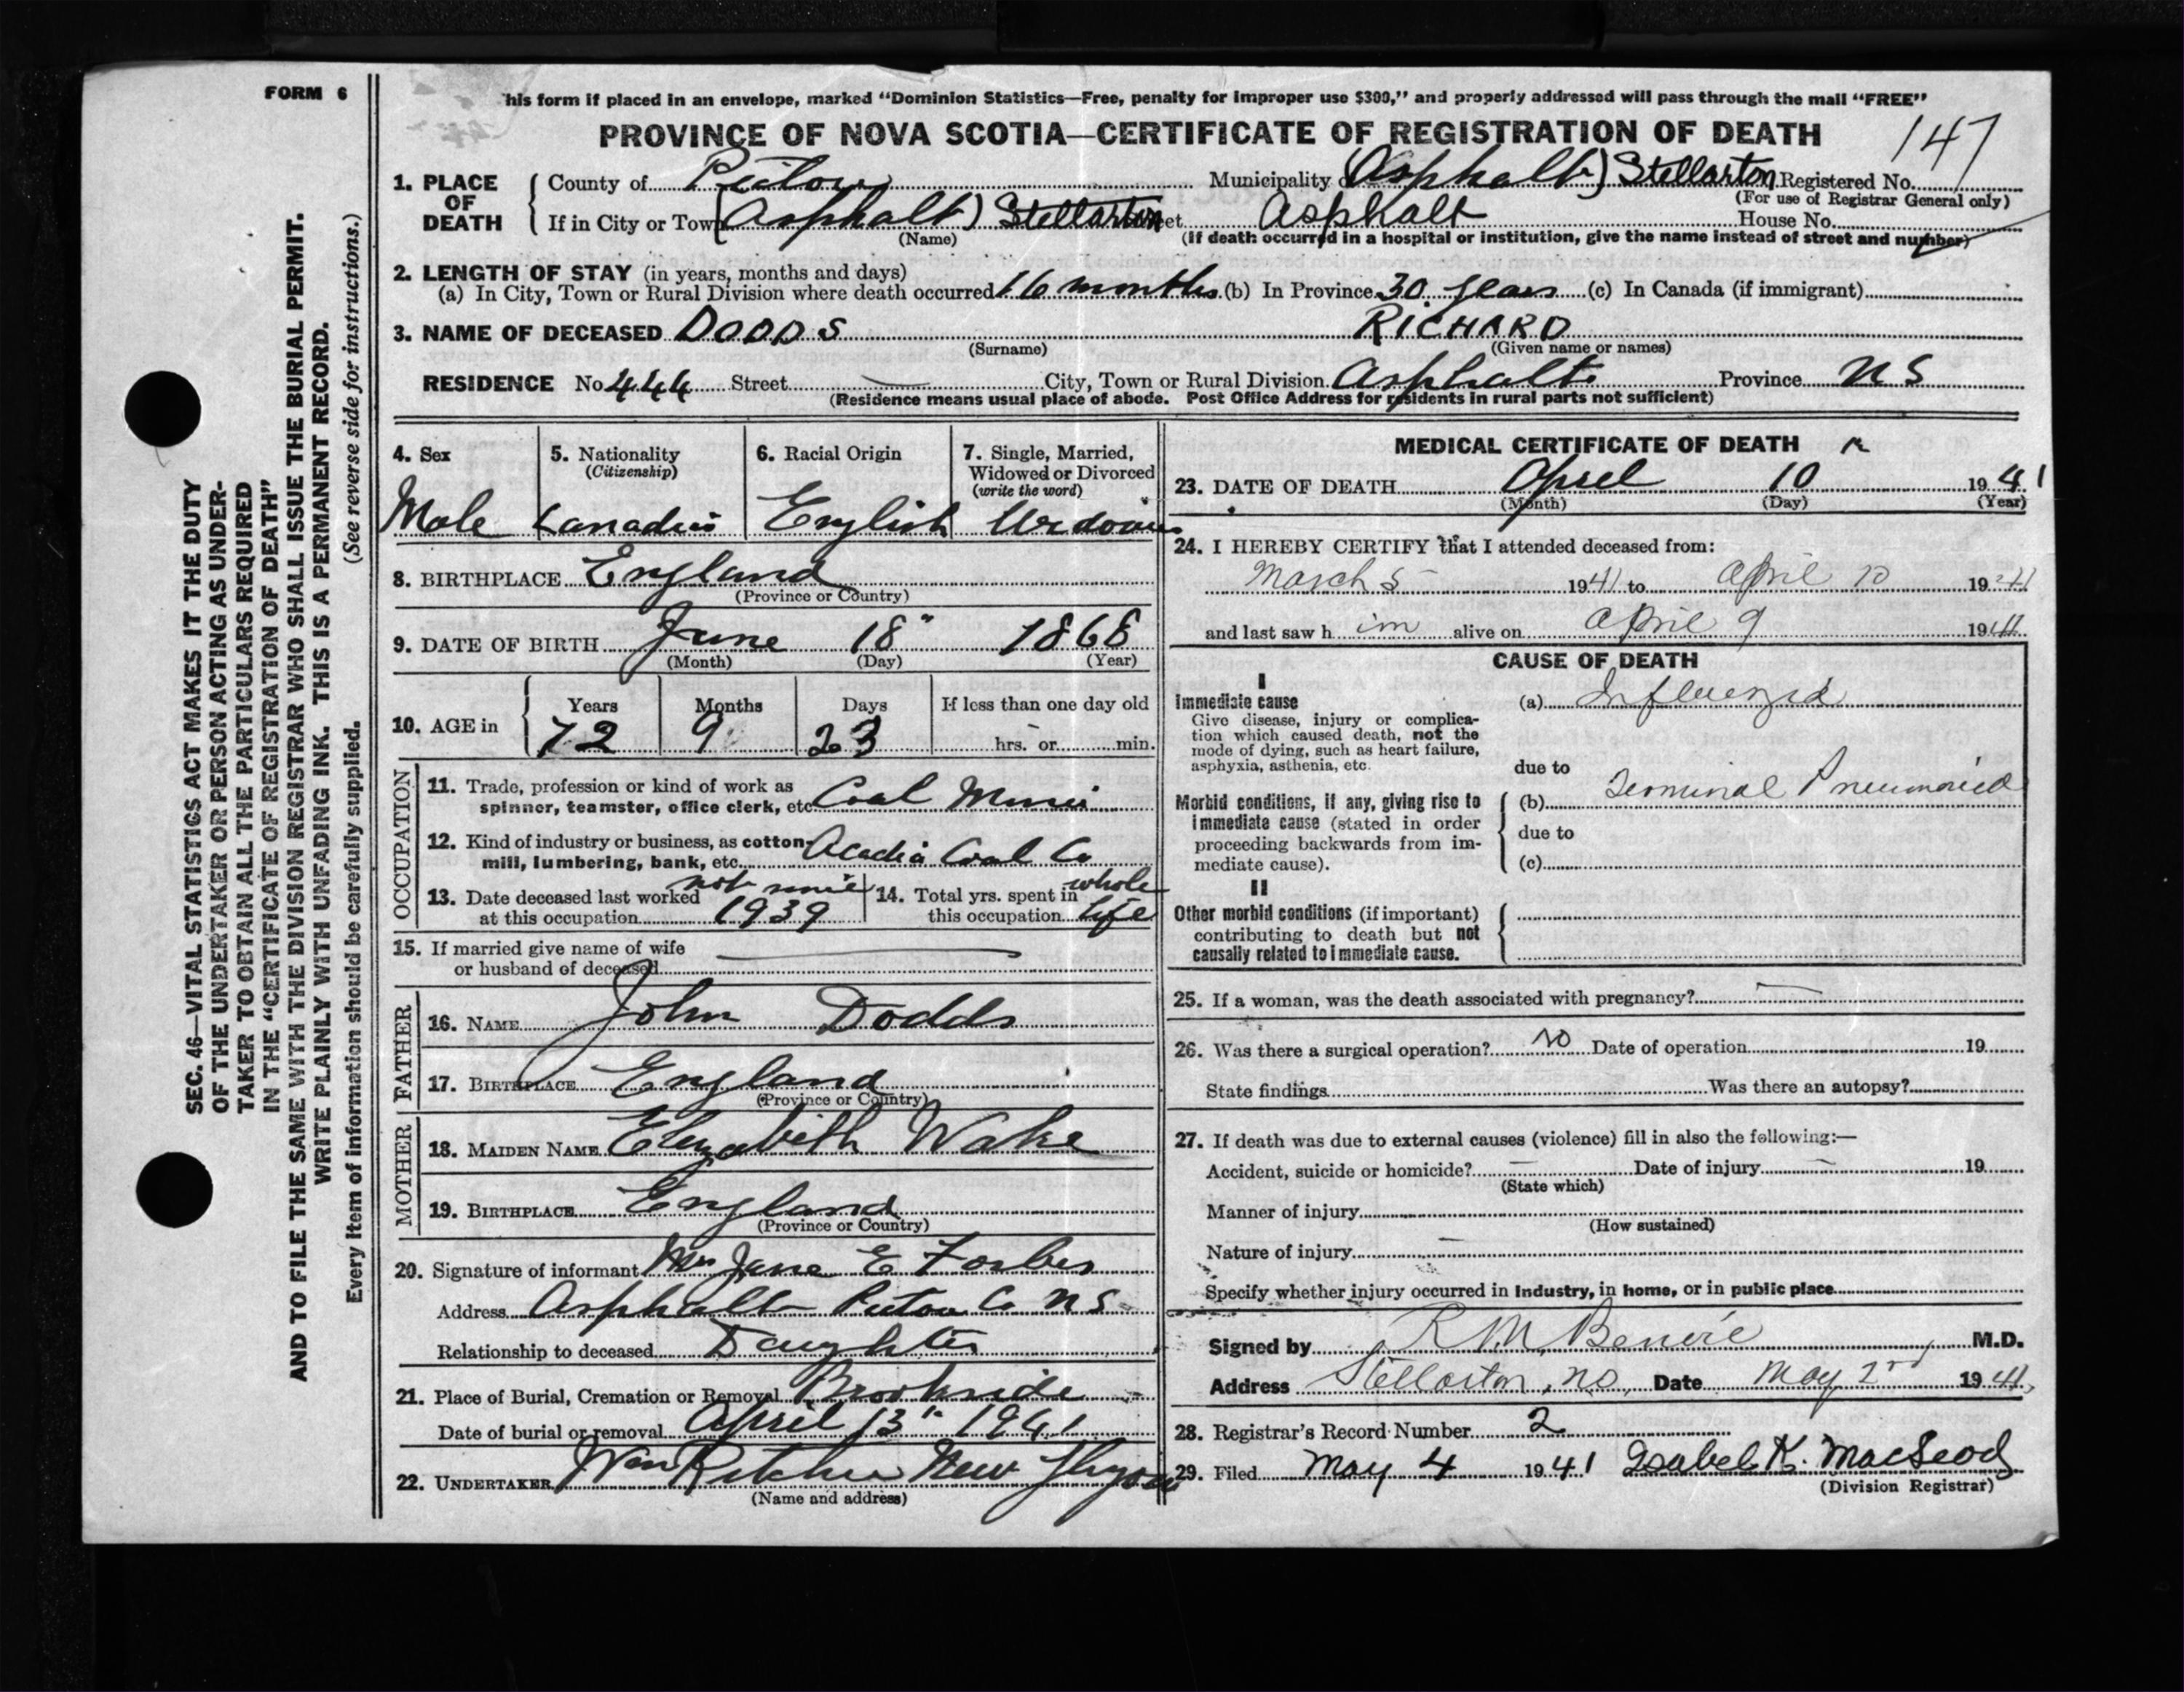 FORM 6
his form if placed in an envelope, marked "Dominion Statistics—Free, penalty for improper use $300," and properly addressed will pass through the mail "FREE"
PROVINCE OF NOVA SCOTIA—CERTIFICATE OF REGISTRATION OF DEATH
147
1. PLACE OF DEATH
County of Pictou Municipality (Asphalt) Stellarton Registered No.
(For use of Registrar General only)
If in City or Town (Asphalt) Stellarton Asphalt House No.
(Name) (If death occurred in a hospital or institution, give the name instead of street and number)
2. LENGTH OF STAY (in years, months and days)
(a) In City, Town or Rural Division where death occurred 16 months (b) In Province 30 years (c) In Canada (if immigrant)
3. NAME OF DECEASED DODDS RICHARD
(Surname) (Given name or names)
RESIDENCE No 444 Street — City, Town or Rural Division Asphalt Province NS
(Residence means usual place of abode. Post Office Address for residents in rural parts not sufficient)
4. Sex
Male
5. Nationality
(Citizenship)
6. Racial Origin
English
7. Single, Married,
Widowed or Divorced
(write the word)
8. BIRTHPLACE England
(Province or Country)
9. DATE OF BIRTH June 18" 1868
(Month) (Day) (Year)
10. AGE in
Years Months Days If less than one day old
72 9 23 hrs. or min.
OCCUPATION
11. Trade, profession or kind of work as
spinner, teamster, office clerk, etc. Coal
12. Kind of industry or business, as cotton-
mill, lumbering, bank, etc. Acadia Coal Co
13. Date deceased last worked not since
at this occupation 1939
14. Total yrs. spent in whole
this occupation life
15. If married give name of wife
or husband of deceased —
FATHER
16. NAME John Dodds
17. BIRTHPLACE England
(Province or Country)
MOTHER
18. MAIDEN NAME Elizabeth Wake
19. BIRTHPLACE England
(Province or Country)
20. Signature of informant Mrs Jane E Forbes
Address Asphalt Pictou Co NS
Relationship to deceased Daughter
21. Place of Burial, Cremation or Removal Brookside
Date of burial or removal April 13" 1941
22. UNDERTAKER Wm Ritchie New
(Name and address)
MEDICAL CERTIFICATE OF DEATH
23. DATE OF DEATH April 10 1941
(Month) (Day) (Year)
24. I HEREBY CERTIFY that I attended deceased from:
March 5 1941 to April 10 1941
and last saw him alive on April 9 1941
CAUSE OF DEATH
I
Immediate cause
Give disease, injury or complica-
tion which caused death, not the
mode of dying, such as heart failure,
asphyxia, asthenia, etc.
(a) Influenza
due to
Morbid conditions, if any, giving rise to
immediate cause (stated in order
proceeding backwards from im-
mediate cause).
(b) Terminal Pneumonia
due to
(c)
II
Other morbid conditions (if important)
contributing to death but not
causally related to immediate cause.
25. If a woman, was the death associated with pregnancy? —
26. Was there a surgical operation? NO Date of operation 19
State findings Was there an autopsy?
27. If death was due to external causes (violence) fill in also the following:—
Accident, suicide or homicide? — Date of injury — 19
(State which)
Manner of injury
(How sustained)
Nature of injury —
Specify whether injury occurred in Industry, in home, or in public place
Signed by R M Benvie M.D.
Address Stellarton, NS. Date May 2nd 1941
28. Registrar's Record Number 2
29. Filed May 4 1941 Isabel K. MacLeod
(Division Registrar)
SEC. 46—VITAL STATISTICS ACT MAKES IT THE DUTY
OF THE UNDERTAKER OR PERSON ACTING AS UNDER-
TAKER TO OBTAIN ALL THE PARTICULARS REQUIRED
IN THE "CERTIFICATE OF REGISTRATION OF DEATH"
AND TO FILE THE SAME WITH THE DIVISION REGISTRAR WHO SHALL ISSUE THE BURIAL PERMIT.
WRITE PLAINLY WITH UNFADING INK. THIS IS A PERMANENT RECORD.
Every item of information should be carefully supplied. (See reverse side for instructions.)